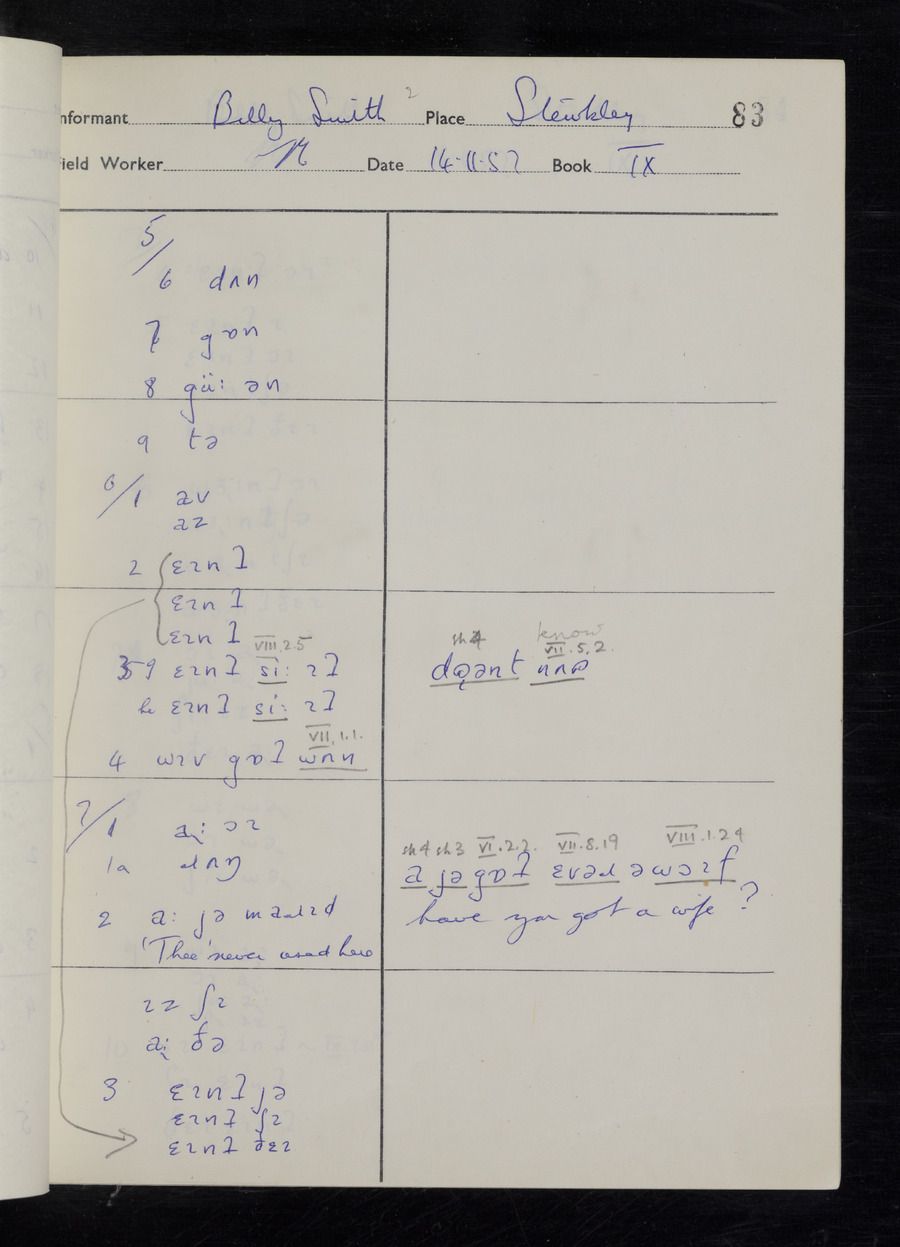 nformant Billy Smith 2 Place Stewkley 83
ield Worker Date 14-11-57 Book IX
5/
6 dʌn
7 gɒn
8 gü: ən
9 tə
6/1 av
az
2 ɛɪnʔ
ɛɪnʔ
ɛɪnʔ
VIII.2.5
3 ɛɪnʔ si: ɪʔ
sh 4 know
VII.5.2.
dɒənt nʌɒ
he ɛɪnʔ si: ɪʔ
VII.1.1.
4 wɪv gɒʔ wʌn
7/1 a: ɔɪ
1a
sh 4 sh 3 VI.2.2. VII.8.19 VIII.1.24
a jə gɒʔ ɛvəl ə wɔɪf
have you got a wife ?
2 a: jə maɹɪd
'Thee' never used here
ɪz ʃɪ
a: ðə
3 ɛɪnʔ jə
ɛɪnʔ ʃɪ
ɛɪnʔ ðɛɪ